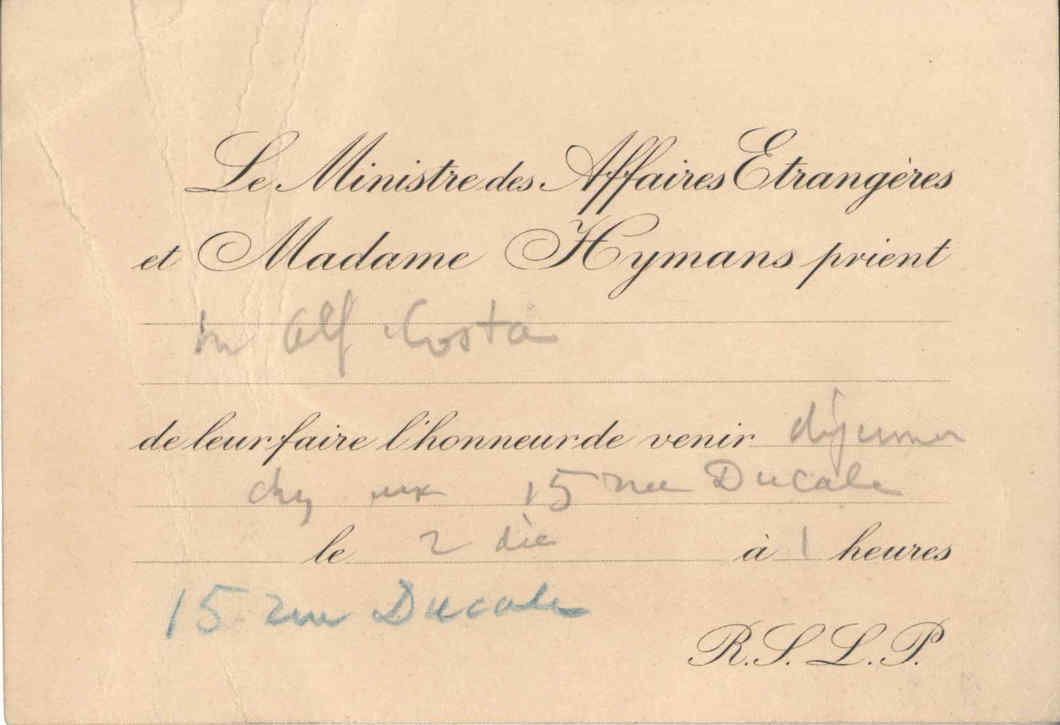 Le Ministre des Affaires Etrangères
et Madame Hymans prient
M Alf Costa
de leur faire l'honneur de venir déjeuner
chez eux 15 rue Ducale
le 2 déc à 1 heures
15 rue Ducale
R.S.L.P.